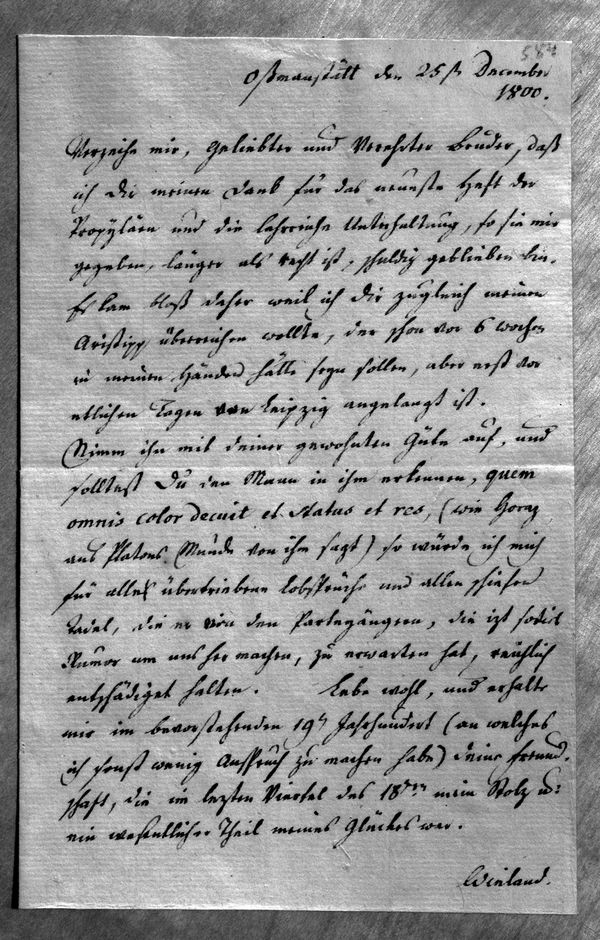 584
Oßmanstätt den 25st December
1800.
Verzeihe mir, Geliebter und Verehrter Bruder, daß
ich Dir meinen Dank für das neueste Heft der
Propyläen und die lehrreiche Unterhaltung, so sie mir
gegeben, länger als recht ist, schuldig geblieben bin.
Es kam bloß daher weil ich Dir zugleich meinen
Aristipp überreichen wollte, der schon vor 6 Wochen
in meinen Händen hätte seyn sollen, aber erst vor
etlichen Tagen von Leipzig angelangt ist.
Nimm ihn mit deiner gewohnten Güte auf, und
solltest Du den Mann in ihm erkennen, quem
omnis color decuit et status et res, (wie Horaz
aus Platons Munde von ihm sagt) so würde ich mich
für alles übertriebene Lobsprüche und allen schiefen
Tadel, die er von den Parteygängern, die izt soviel
Rumor um uns her machen, zu erwarten hat, reichlich
entschädiget halten. Lebe wohl, und erhalte
mir im bevorstehenden 19ten Jahrhundert (an welches
ich sonst wenig Anspruch zu machen habe) deine Freund-
schaft, die im lezten Viertel des 18ten mein Stolz u:
ein wesentlicher Theil meines Glückes war.
Wieland.